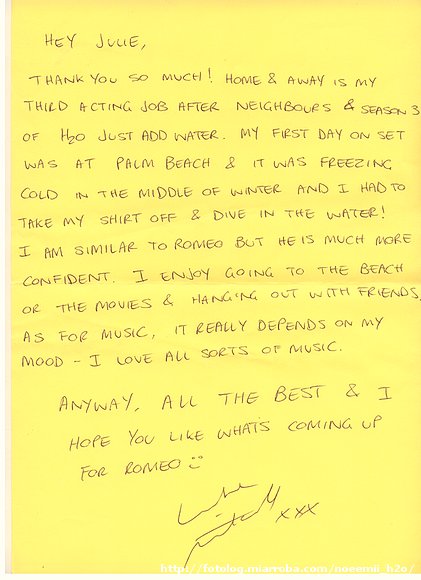 HEY JULIE,
THANK YOU SO MUCH! HOME & AWAY IS MY
THIRD ACTING JOB AFTER NEIGHBOURS & SEASON 3
OF H2O JUST ADD WATER. MY FIRST DAY ON SET
WAS AT PALM BEACH & IT WAS FREEZING
COLD IN THE MIDDLE OF WINTER AND I HAD TO
TAKE MY SHIRT OFF & DIVE IN THE WATER!
I AM SIMILAR TO ROMEO BUT HE IS MUCH MORE
CONFIDENT. I ENJOY GOING TO THE BEACH
OR THE MOVIES & HANGING OUT WITH FRIENDS.
AS FOR MUSIC, IT REALLY DEPENDS ON MY
MOOD - I LOVE ALL SORTS OF MUSIC.
ANYWAY, ALL THE BEST & I
HOPE YOU LIKE WHATS COMING UP
FOR ROMEO
xxx
http://fotolog.miarroba.com/noeemii_h2o/